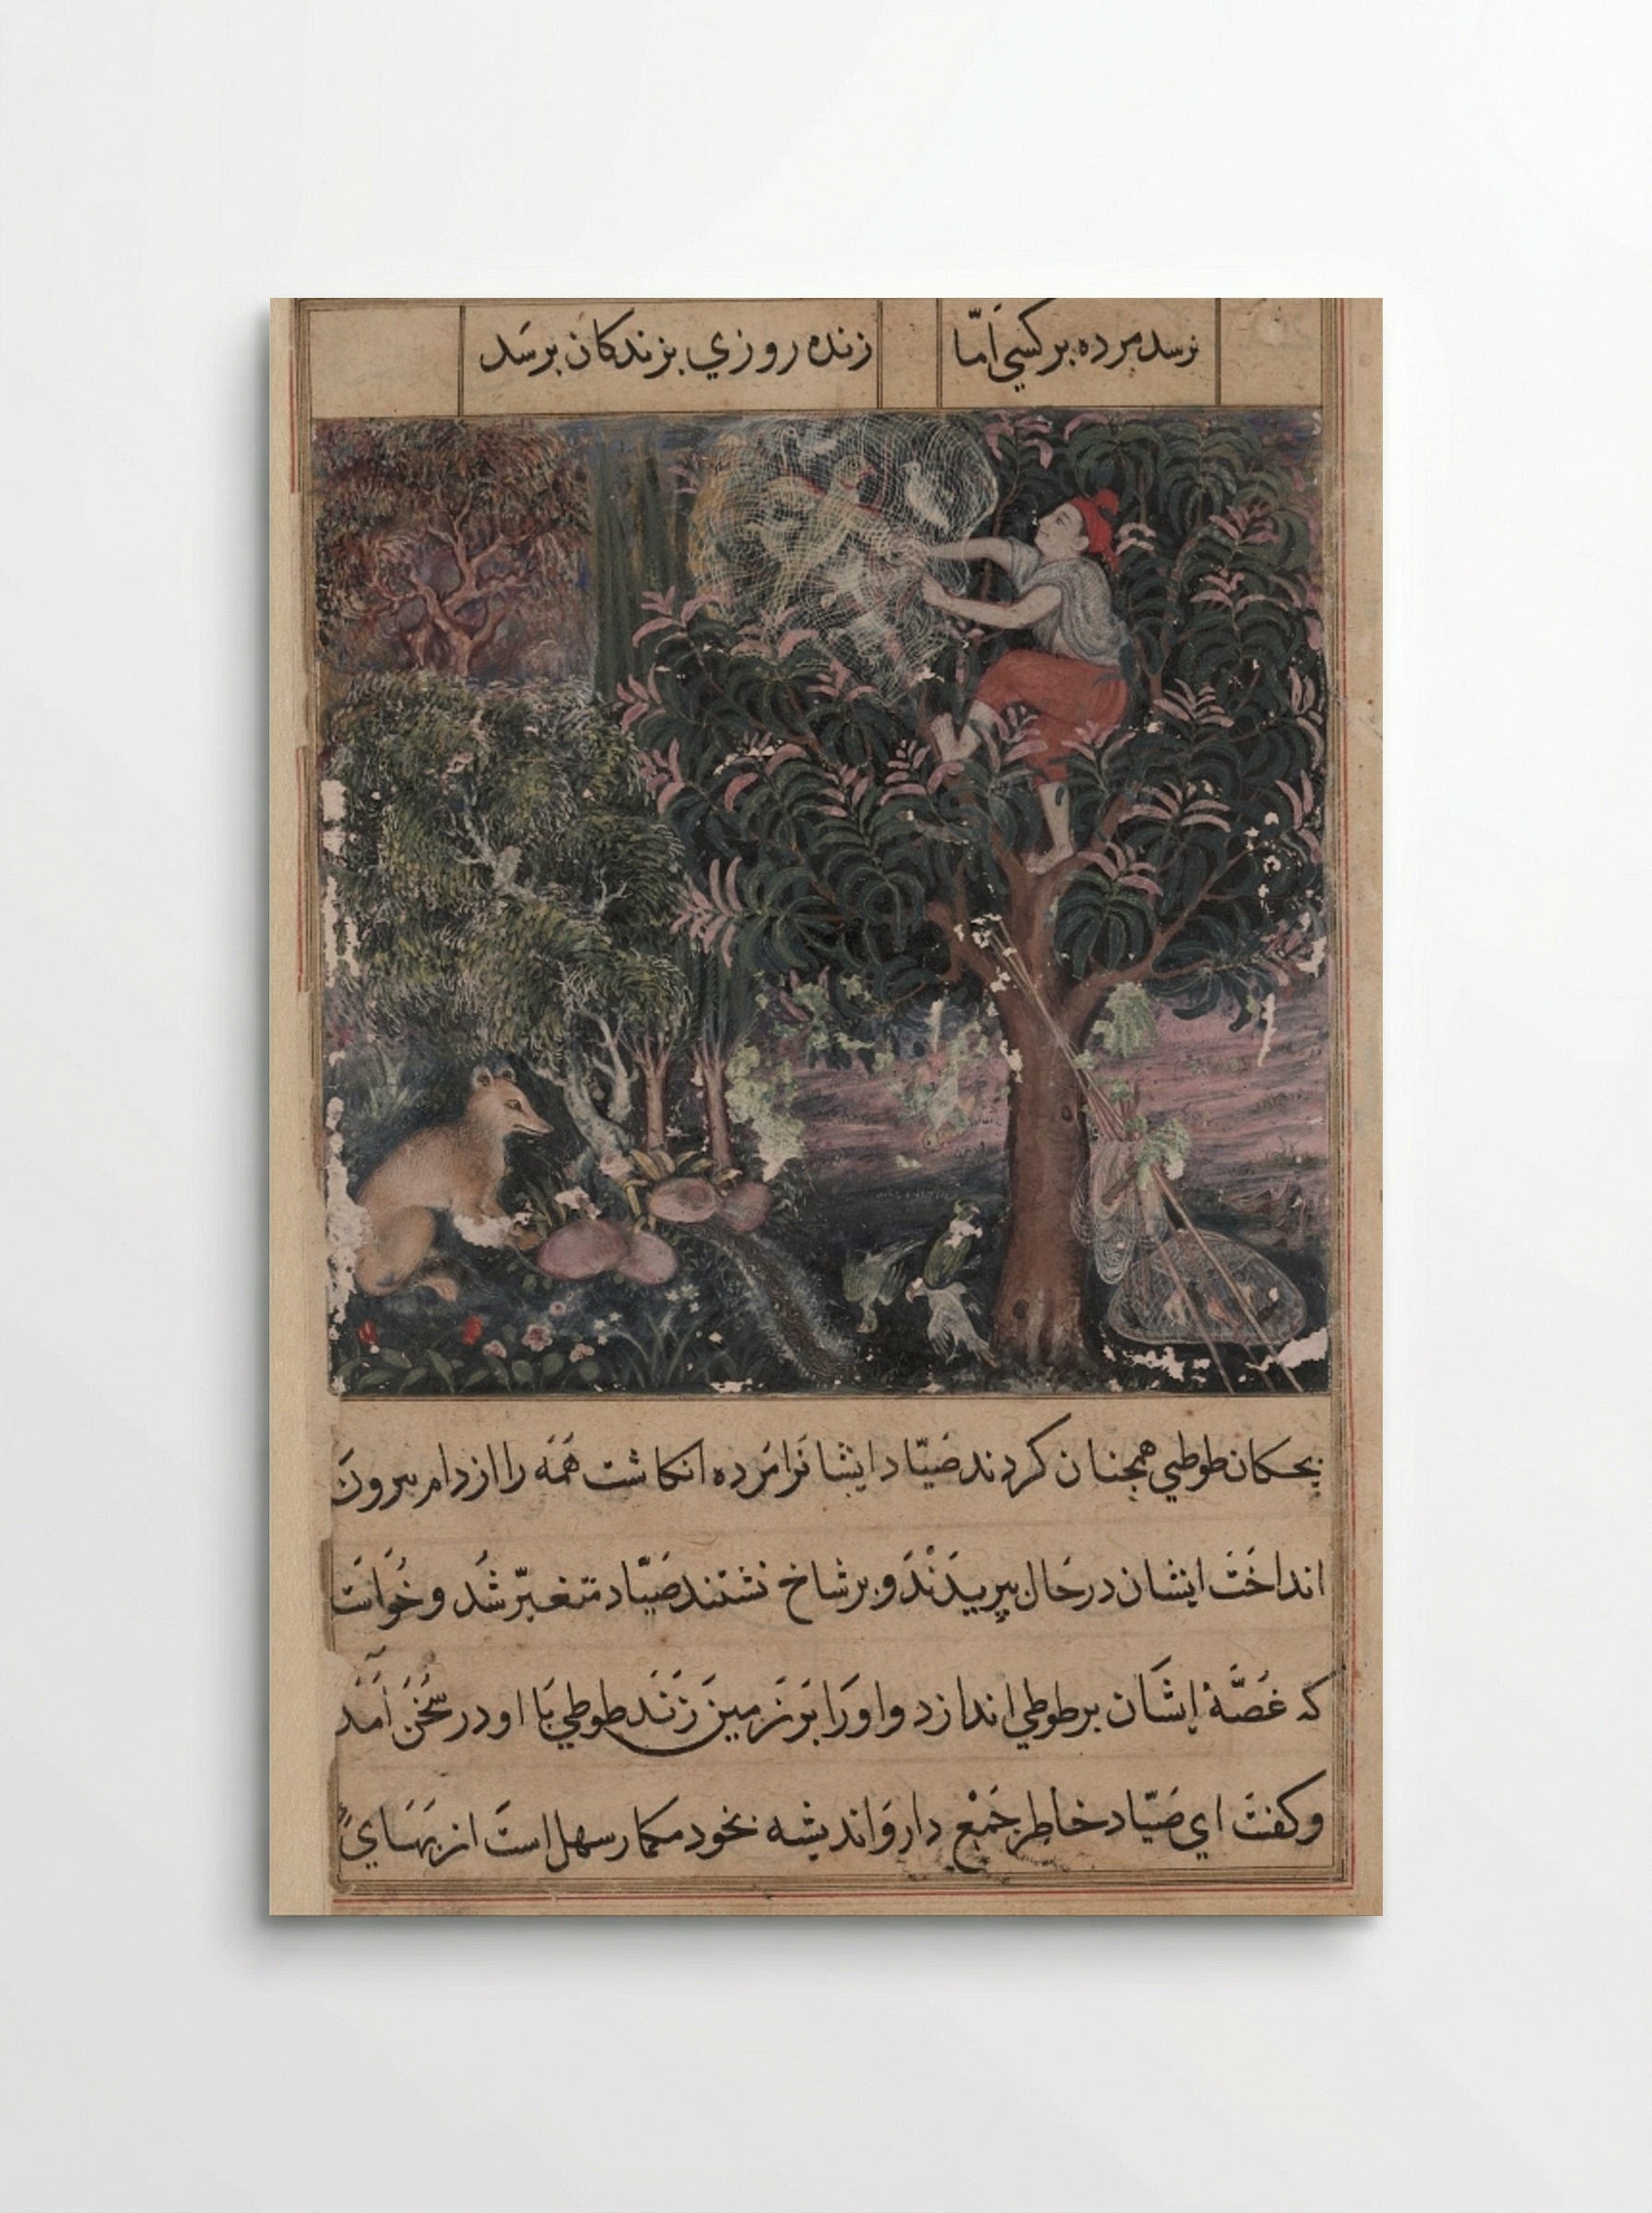 نرسد مرده بر کسي امّا زنده روزي بزندکان برسَد
بچکان طوطي همچنان کردند صَیّاد ایشانرا مرده انکاشت هَمَه را از دام بیرون
انداخَت ایشان در حَال بپریدَنْدَ و بر شاخ نشتند صَیّاد متغیّر شُد و خُواسَت
که غصّهٔ ایشَان بر طوطي اندازد و اورا بر زمین زنَد طوطي با او در سُخَن آمَد
و کفت اي صَیّاد خاطر جَمْع دار و اندیشه بخود مکمار سهل است از بهَاي